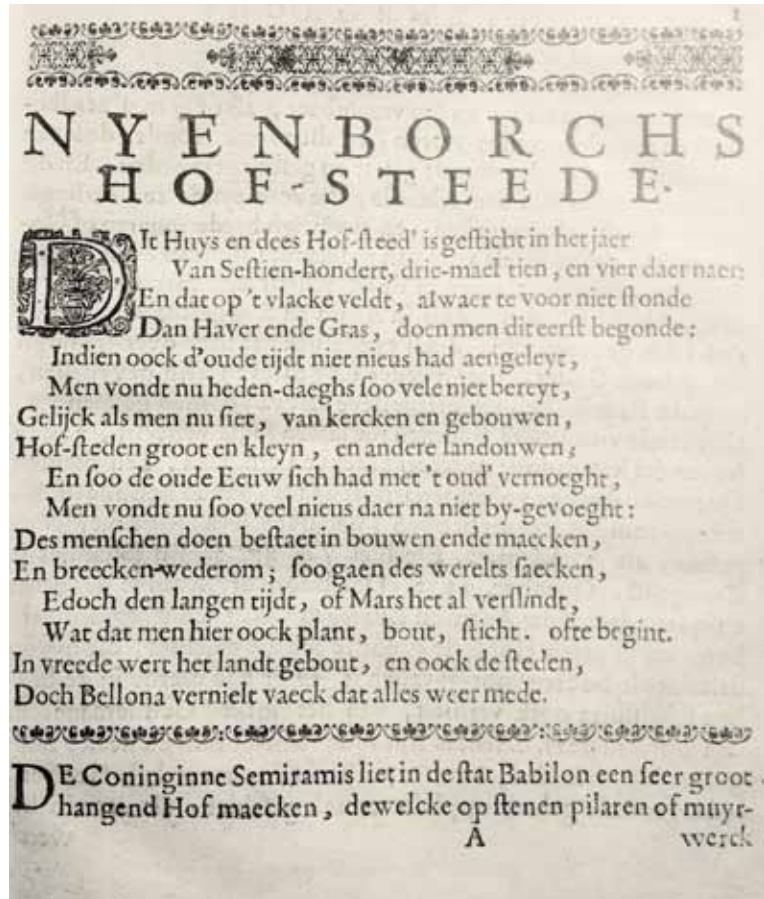 1
NYENBORCHS
HOF-STEEDE.
DIt Huys en dees Hof-steed' is gesticht in het jaer
Van Sestien-hondert, drie-mael tien, en vier daer naer:
En dat op 't vlacke veldt, alwaer te voor niet stonde
Dan Haver ende Gras, doen men dit eerst begonde:
Indien oock d'oude tijdt niet nieus had aengeleyt,
Men vondt nu heden-daeghs soo vele niet bereyt,
Gelijck als men nu siet, van kercken en gebouwen,
Hof-steden groot en kleyn, en andere landouwen;
En soo de oude Eeuw sich had met 't oud' vernoeght,
Men vondt nu soo veel nieus daer na niet by-gevoeght:
Des menschen doen bestaet in bouwen ende maecken,
En breecken wederom; soo gaen des werelts saecken,
Edoch den langen tijdt, of Mars het al verslindt,
Wat dat men hier oock plant, bout, sticht. ofte begint.
In vreede wert het landt gebout, en oock de steden,
Doch Bellona vernielt vaeck dat alles weer mede.
DE Coninginne Semiramis liet in de stat Babilon een seer groot
hangend Hof maecken, dewelcke op stenen pilaren of muyr-
A werck